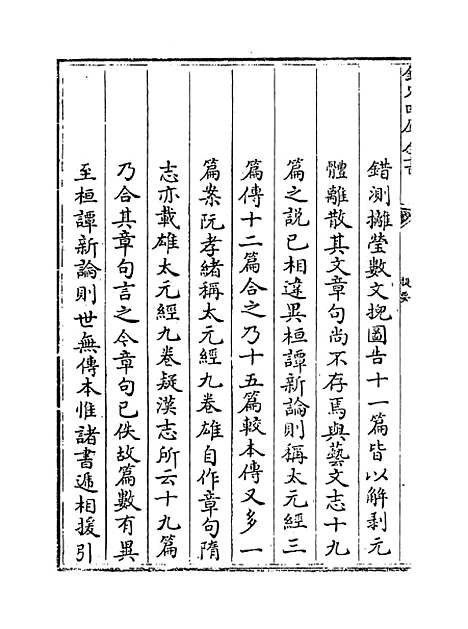 錯測攡瑩數文掜圖告十一篇皆以解剥元
體離散其文章句尚不存焉與藝文志十九
篇之説已相違異桓譚新論則稱太元經三
篇傳十二篇合之乃十五篇較本傳又多一
篇案阮孝緒稱太元經九卷雄自作章句隋
志亦載雄太元經九卷疑漢志所云十九篇
乃合其章句言之今章句已佚故篇數有異
至桓譚新論則世無傳本惟諸書遞相援引